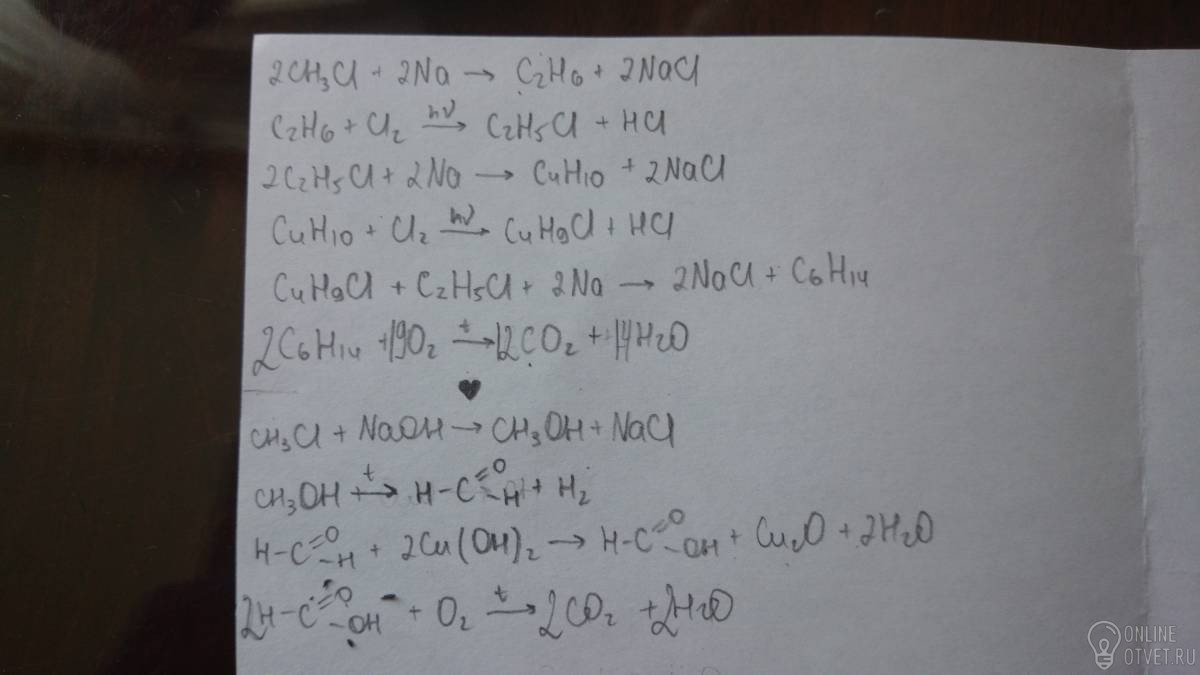 2CH₃Cl + 2Na → C₂H₆ + 2NaCl
C₂H₆ + Cl₂ hν→ C₂H₅Cl + HCl
2C₂H₅Cl + 2Na → C₄H₁₀ + 2NaCl
C₄H₁₀ + Cl₂ hν→ C₄H₉Cl + HCl
C₄H₉Cl + C₂H₅Cl + 2Na → 2NaCl + C₆H₁₄
2C₆H₁₄ + 19O₂ t→ 12CO₂ + 14H₂O
♥
CH₃Cl + NaOH → CH₃OH + NaCl
CH₃OH t→ H-C=O-H + H₂
H-C=O-H + 2Cu(OH)₂ → H-C=O-OH + Cu₂O + 2H₂O
2H-C=O-OH + O₂ t→ 2CO₂ + 2H₂O
ONLINE
OTVET.RU